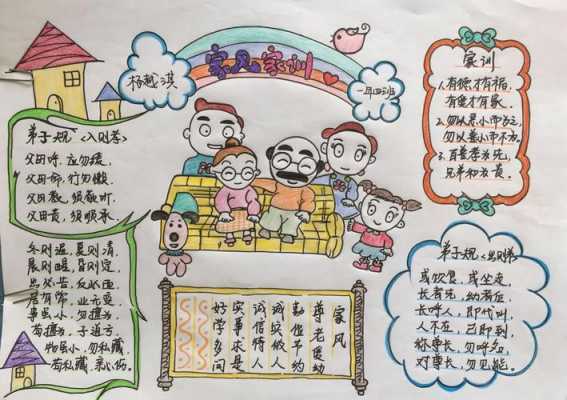 家风家训
杨越淇
一年四班
弟子规《入则孝》
父母呼,应勿缓
父母命,行勿懒
父母教,须敬听
父母责,须顺承
冬则温,夏则清
晨则省,昏则定
出必告,反必面
居有常,业无变
事虽小,勿擅为
苟擅为,子道亏
物虽小,勿私藏
苟私藏,亲心伤
家训
1.有德才有福,
有爱才有家。
2.勿以恶小而为之,
勿以善小而不为。
3.百善孝为先,
兄弟和为贵。
家风
尊老爱幼
勤俭节约
诚实做人
诚信待人
实事求是
好学多问
弟子规《出则弟》
或饮食,或坐走,
长者先,幼者后,
长呼人,即代叫,
人不在,己即到,
称尊长,勿呼名,
对尊长,勿见能。